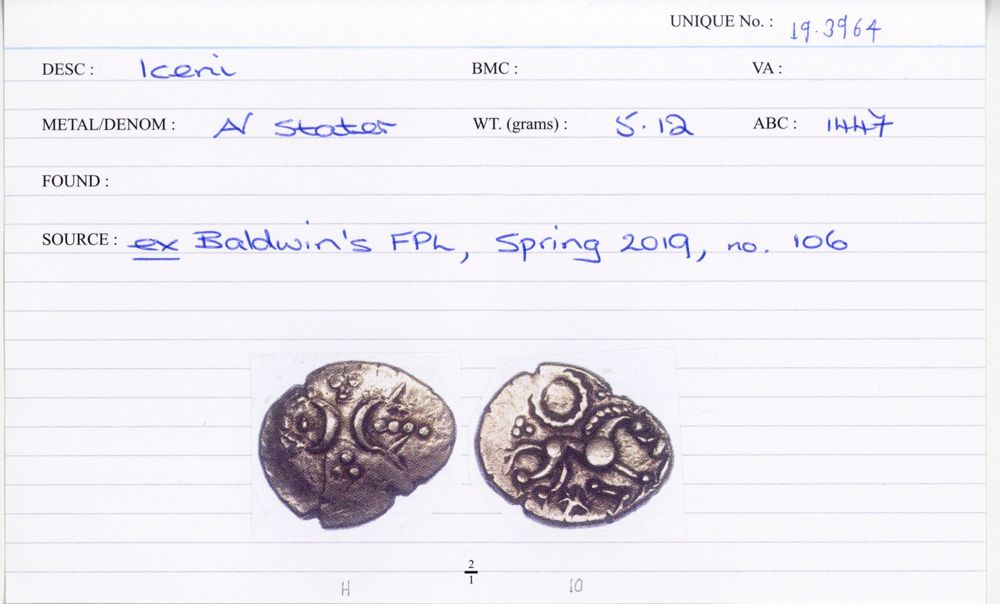 UNIQUE No. : 19.3964
DESC : Iceni BMC : VA :
METAL/DENOM : AV Stater WT. (grams) : 5.12 ABC : 1447
FOUND :
SOURCE : ex Baldwin's FPL, Spring 2019, no. 106
2
1
H 10